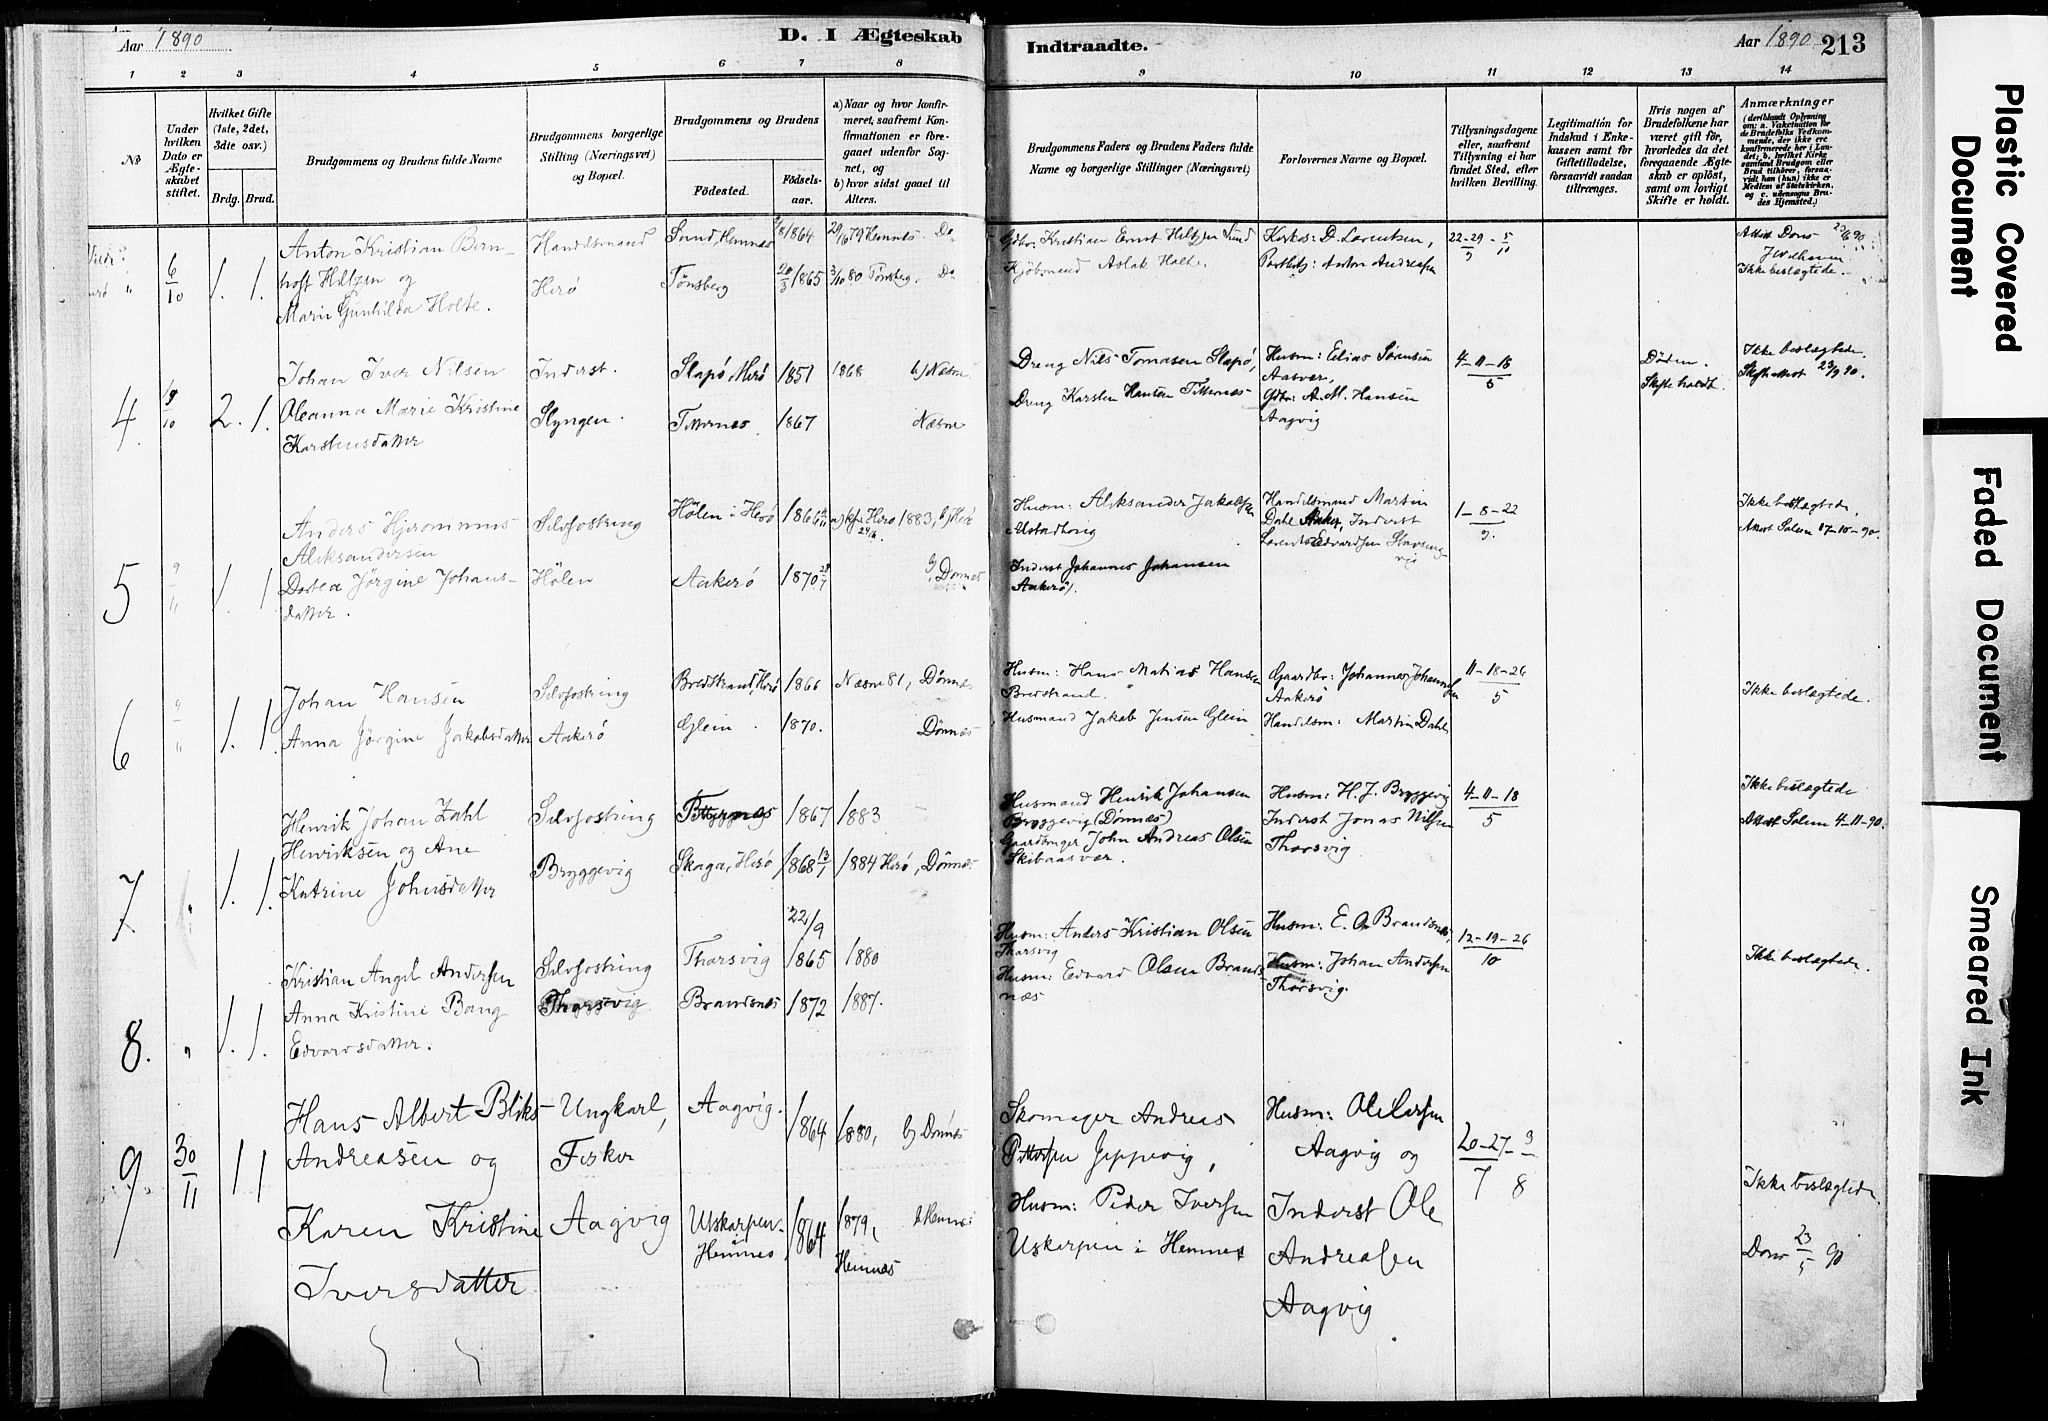 Aar 1890
D. I Ægteskab
Indtraadte.
Aar 1890 213
1 2 3 4 5 6 7 8 9 10 11 12 13 14
No
Under hvilken Dato er Ægteskabet stiftet.
Hvilket Gifte (1ste, 2det, 3die osv.)
Brdg. Brud.
Brudgommens og Brudens fulde Navne
Brudgommens borgerlige Stilling (Næringsvei) og Bopæl.
Brudgommens og Brudens
Fødested.
Fødsels-aar.
a) Naar og hvor konfirmeret, saafremt Konfirmationen er foregaaet udenfor Sognet, og
b) hvor sidst gaaet til Alters.
Brudgommens Faders og Brudens Faders fulde Navne og borgerlige Stillinger (Næringsvei)
Forlovernes Navne og Bopæl.
Tillysningsdagene eller, saafremt Tillysning ei har fundet Sted, efter hvilken Bevilling.
Legitimation for Indskud i Enkekassen samt for Giftetilladelse, forsaavidt saadan tiltrænges.
Hvis nogen af Brudefolkene har været gift før, hvorledes da det foregaaende Ægteskab er opløst, samt om lovligt Skifte er holdt.
Anmærkninger
(deriblandt Oplysning om: a. Vakcination for de Brudefolks Vedkommende, der ikke ere konfirmerede her i Landet; b. hvilket Kirkesamfund Brudgom eller Brud tilhører, forsaavidt han (hun) ikke er Medlem af Statskirken, og c. udensogns Brudes Hjemsted.)
6/10 1. 1.
Anton Kristian Bern-
hoft Hiltzen og
Marie Gunhilda Holte.
Handelsmand
Herø
Sund, Hemnes 1864 29/6 79 Hemnes Do
Tønsberg 20/3 1865 3/10 80 Tønsberg. Do
Gdbr. Kristian Ernst Hiltzen Sund
Kjøbmand Aslak Holte.
Kirkes: D. Lorentsen,
Anton Andreasen
22-29-5
9 10
Attest Dons 23/6 90
Ikke beslægtede.
4 19/10 2. 1.
Johan Iver Nilsen
Oleanna Marie Kristine
Karstensdatter
Inderst.
Slyngen.
Slapø, Herø 1851 1868 b) Næsne
Titternes. 1867 Næsne
Dreng Nils Tomasen Slapø,
Dreng Karsten Hansen Titternæs
Husm: Elias Sørensen
Aasvær,
Gdbr: A. M. Hansen
Aagvig
4-11-18
5
Døden.
Skifte holdt.
Ikke beslægtede.
Skifteattest 23/9 90.
5 9/11 1. 1
Anders Hjeronimus
Aleksandersen
Dortea Jørgine Johans-
datter.
Selvfostring
Hølen
Hølen i Herø 1866 a) kfr Herø 24/6 1883, b) Herø
Aakerø 1870 b) Dønnes
Husm: Aleksander Jakobsen
Alstadhoug
Inderst Johannes Johansen
Aakerø.
Handelsmand Martin
Dahl Aaker, Inderst
Lorents Edvardsen Slavseng-
vig
1-8-22
9.
Ikke beslægtede.
Attest Salem 17-10-90.
6 9/11 1. 1.
Johan Hansen
Anna Jørgine Jakobsdatter
Selvfostring
Aakerø
Bredstrand, Herø 1866 Næsne 81, Dønnes
Glein. 1870. Dønnes
Husm: Hans Matias Hansen
Bredstrand.
Husmand Jakob Jensen Glein
Gaardbr: Johannes Johannesen
Aakerø
Handelsm: Martin Dahl
11-18-26
5
Ikke beslægtede.
7 " 1. 1.
Henrik Johan Zahl
Henriksen og Ane
Katrine Johnsdatter
Selvfostring
Bryggevig
1867 1883
Skaga, Herø 1868 13/1 1884 Herø, Dønnes
Husmand Henrik Johansen
Bryggevig (Dønnæs)
Gaardbruger John Andreas Olsen
Skibaasvær.
Husm: H. J. Bryggevig
Inderst Jonas Nilsen
Thorsvig
4-11-18
5
Ikke beslægtede
Attest Salem 4-11-90.
8. " 1. 1.
Kristian Angel Andersen
Anna Kristine Bang
Edvardsdatter.
Selvfostring
Thorsvig
22/9
Thorsvig 1865 1880
Brandsnæs 1872 1887.
Husm: Anders Kristian Olsen
Thorsvig
Husm: Edvard Olsen Brands-
næs
Husm: E. O. Brandsnæs,
Husm: Johan Andersen
Thorsvig.
12-19-26
10
Ikke beslægtede.
9 30/11 1 1
Hans Albert Bliks
Andreasen og
Karen Kristine
Iversdatter
Ungkarl,
Fisker
Aagvig
Aagvig. 1864 1880, b) Dønnes
Utskarpen 1864 1879, b Hemnes
Hemnes Hemnæs
Skomager Andreas
Pettersen Jeppevig,
Husm: Peder Iversen
Uskarpen i Hemnes
Husm: Ole Larsen
Aagvig og
Inderst Ole
Andreasen
Aagvig
20-27-3
7 8
Ikke beslægtede.
Dons 23/5 90
Plastic Covered Document
Faded Document
Smeared Ink